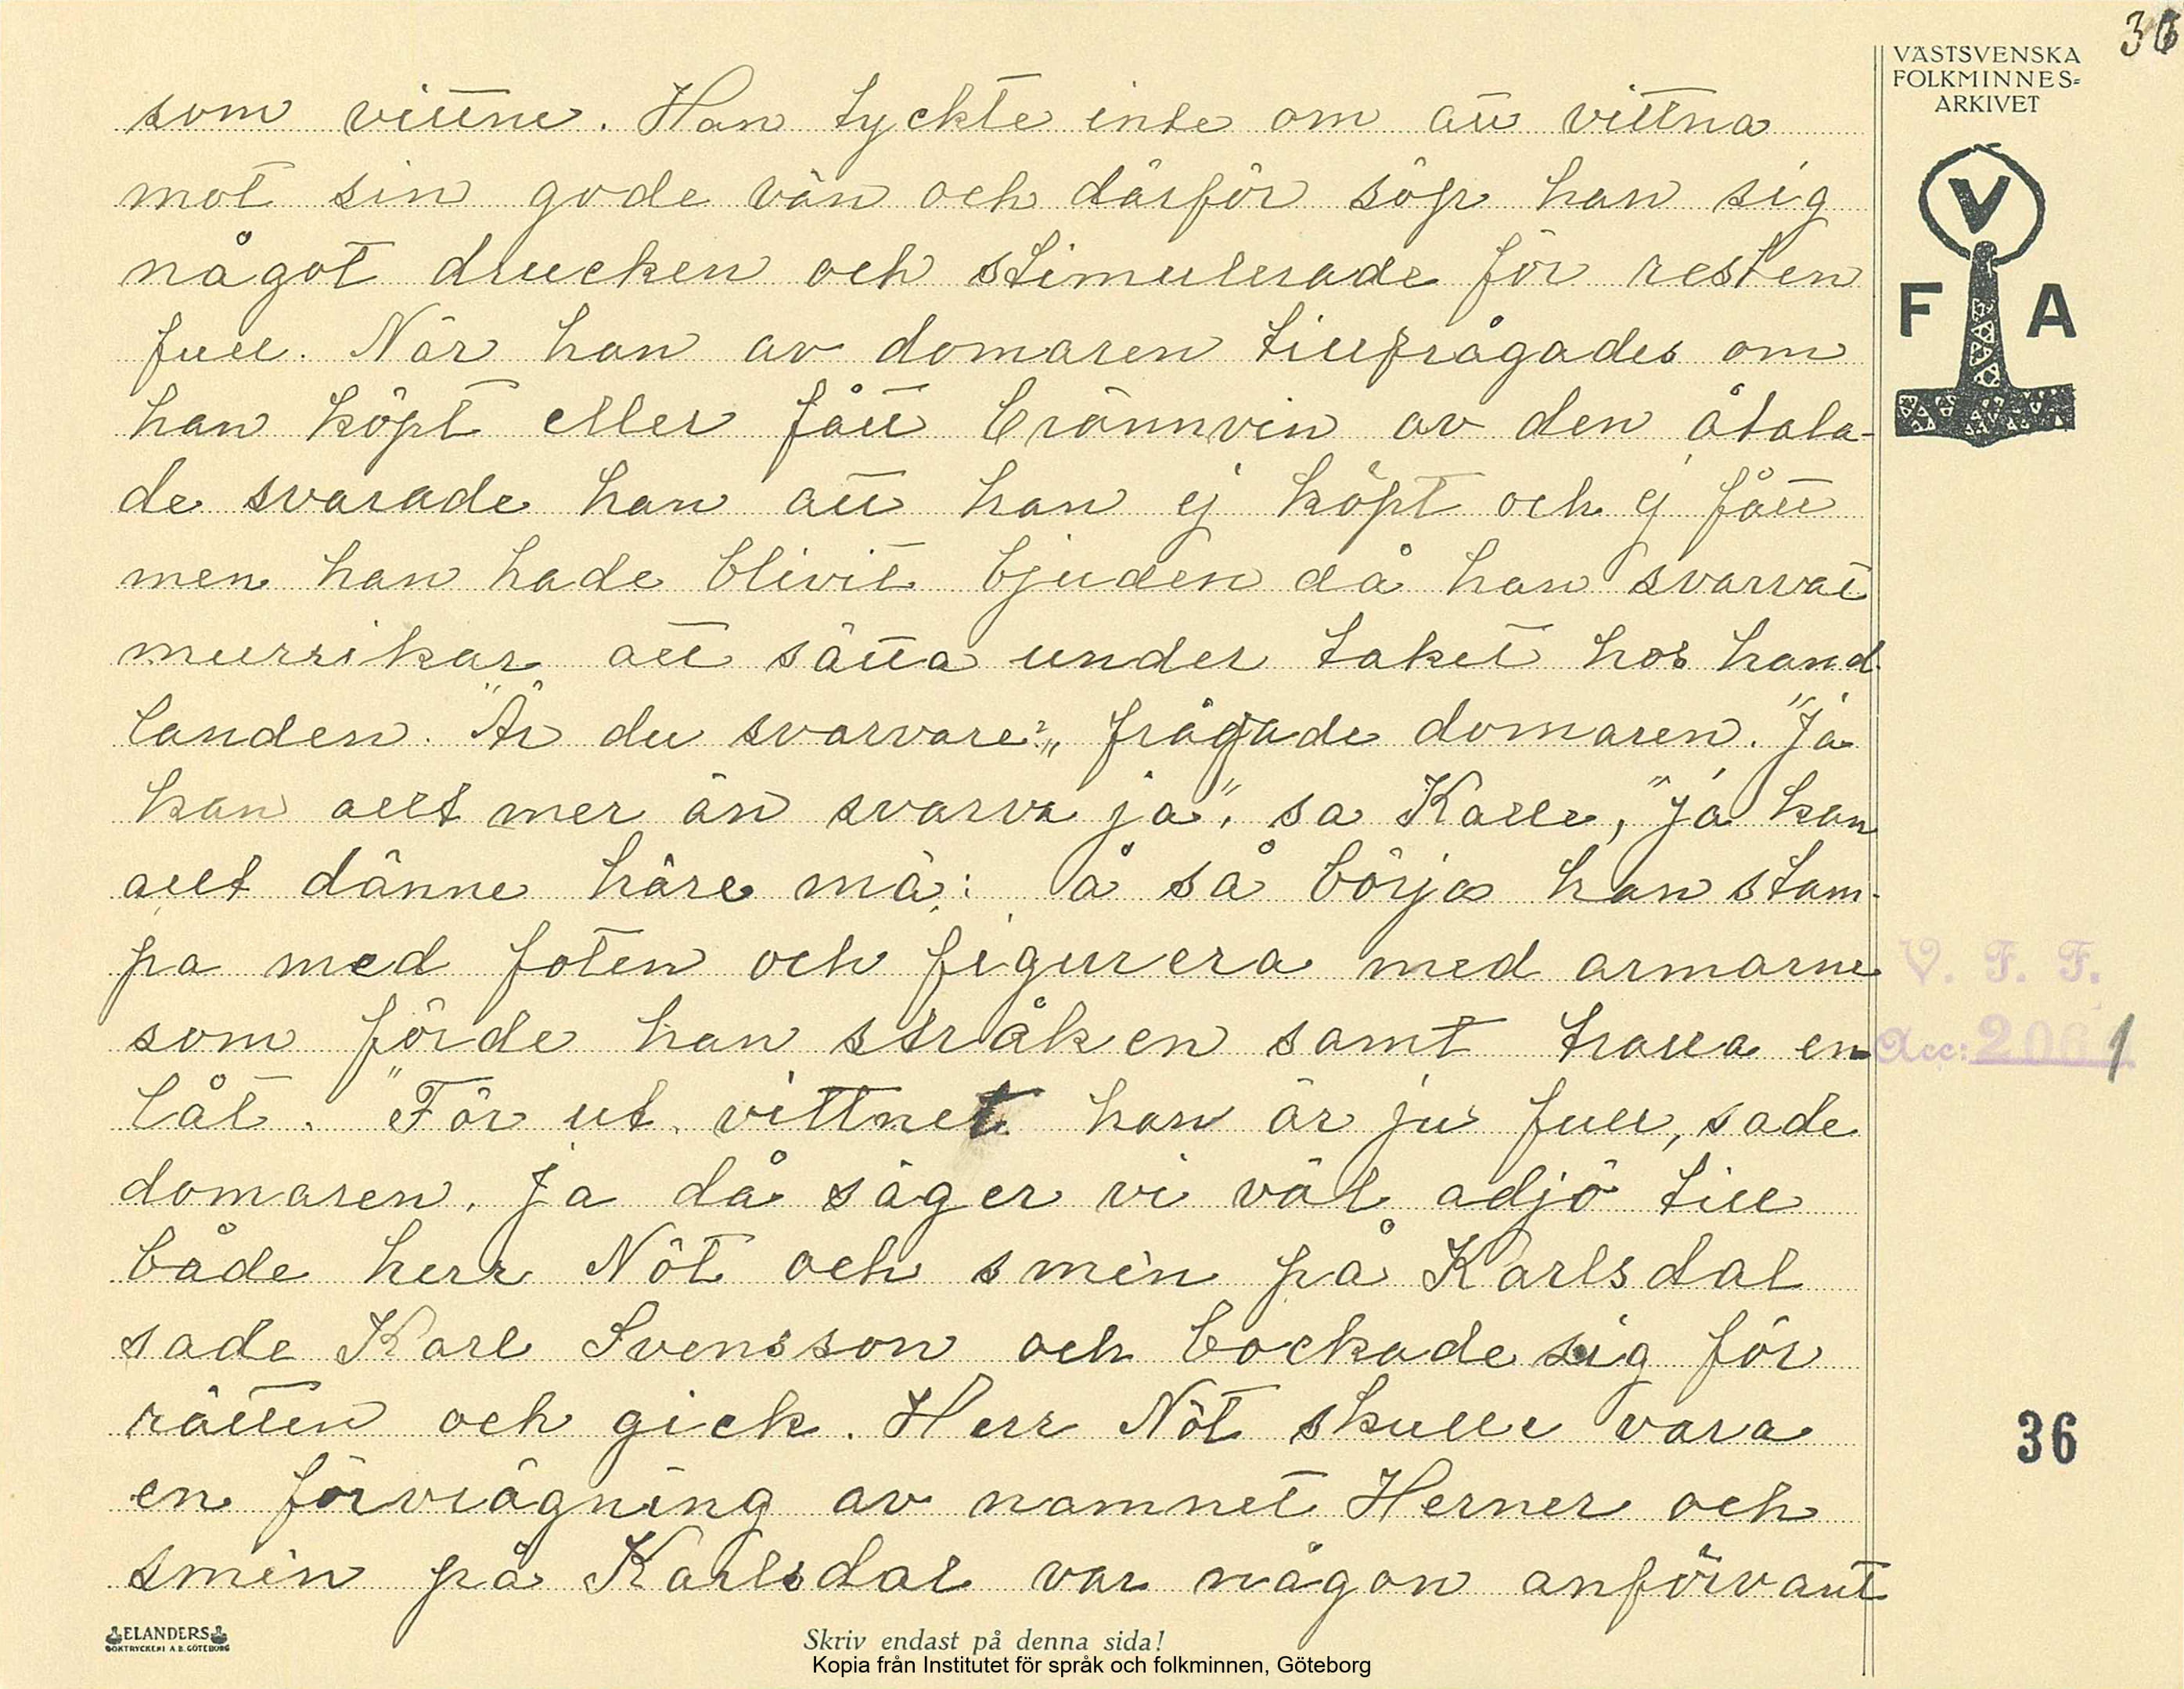 36
VÄSTSVENSKA
FOLKMINNES=
ARKIVET
V
F A
som vittne. Han tyckte inte om att vittna
mot sin gode vän och därför söp han sig
något drucken och stimulerade för resten
full. När han av domaren tillfrågades om
han köpt eller fått brännvin av den åtala-
de svarade han att han ej köpt och ej fått
men han hade blivit bjuden då han svarvat
murrikar att sätta under taket hos hand-
landen. "Är du svarvare?" frågade domaren. "Ja
kan allt mer än svarva ja", sa Kalle, "ja kan
allt dänne häre mä: å så börja han stam-
pa med foten och figurera med armarne
som förde han stråken samt tralla en
låt. "För ut vittnet han är ju full, sade
domaren. Ja då säger vi väl adjö till
både herr Nöt och smen på Karlsdal
sade Karl Svensson och bockade sig för
rätten och gick. Herr Nöt skulle vara
en förvrägning av namnet Herner och
smen på Karlsdal var någon anförvant
V. F. F.
Acc: 2061
36
ELANDERS
BOKTRYCKERI A.B. GÖTEBORG
Skriv endast på denna sida!
Kopia från Institutet för språk och folkminnen, Göteborg